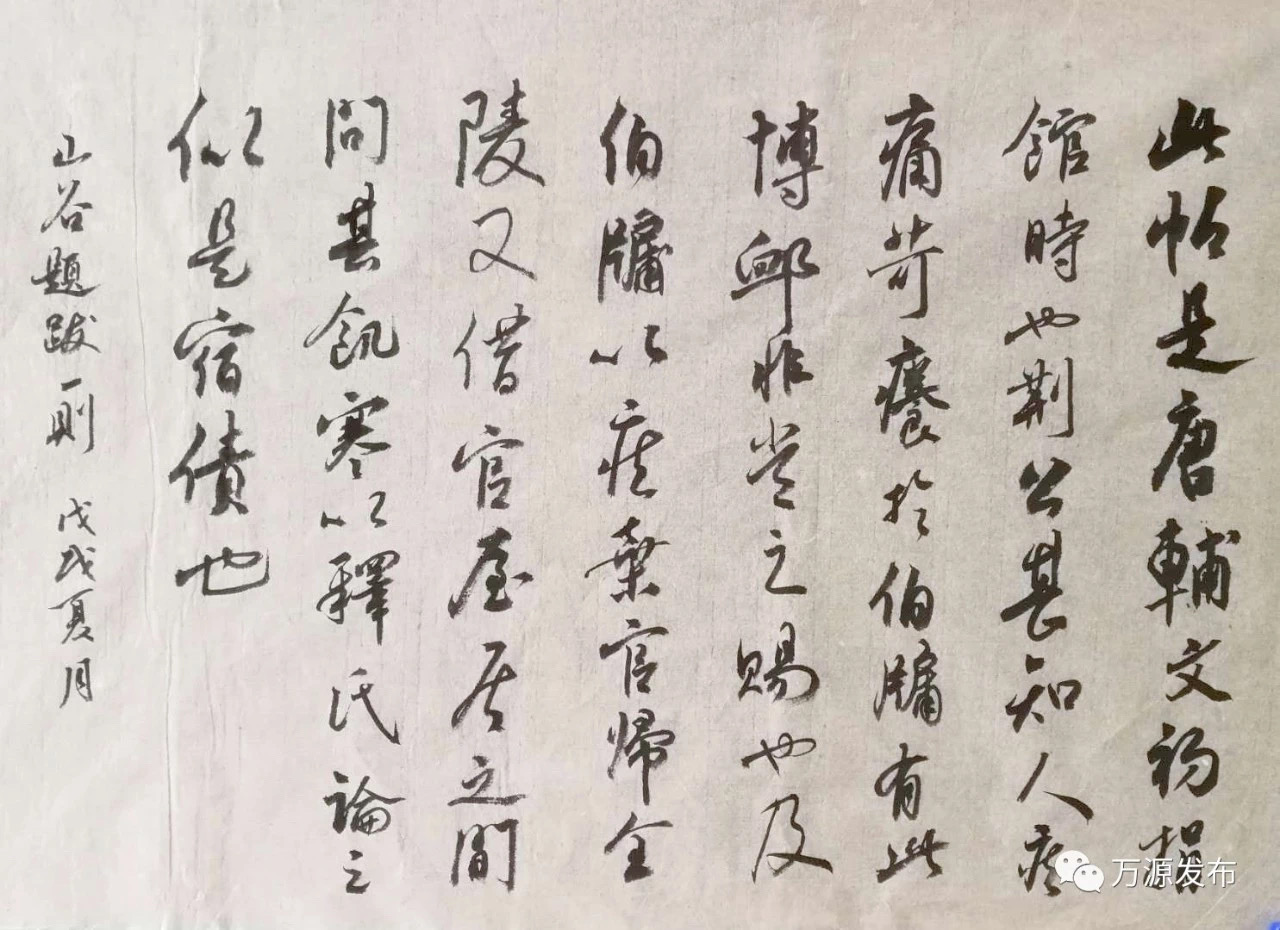 此帖是唐輔文初捐
館時也荆公甚知人疾
痛苛癢於伯牖有此
博鄉非常之賜也及
伯牖以疾棄官歸金
陵又借官屋居之間
問其飢寒以釋氏論之
似是宿債也
山谷題跋一則 戊戌夏月
万源发布